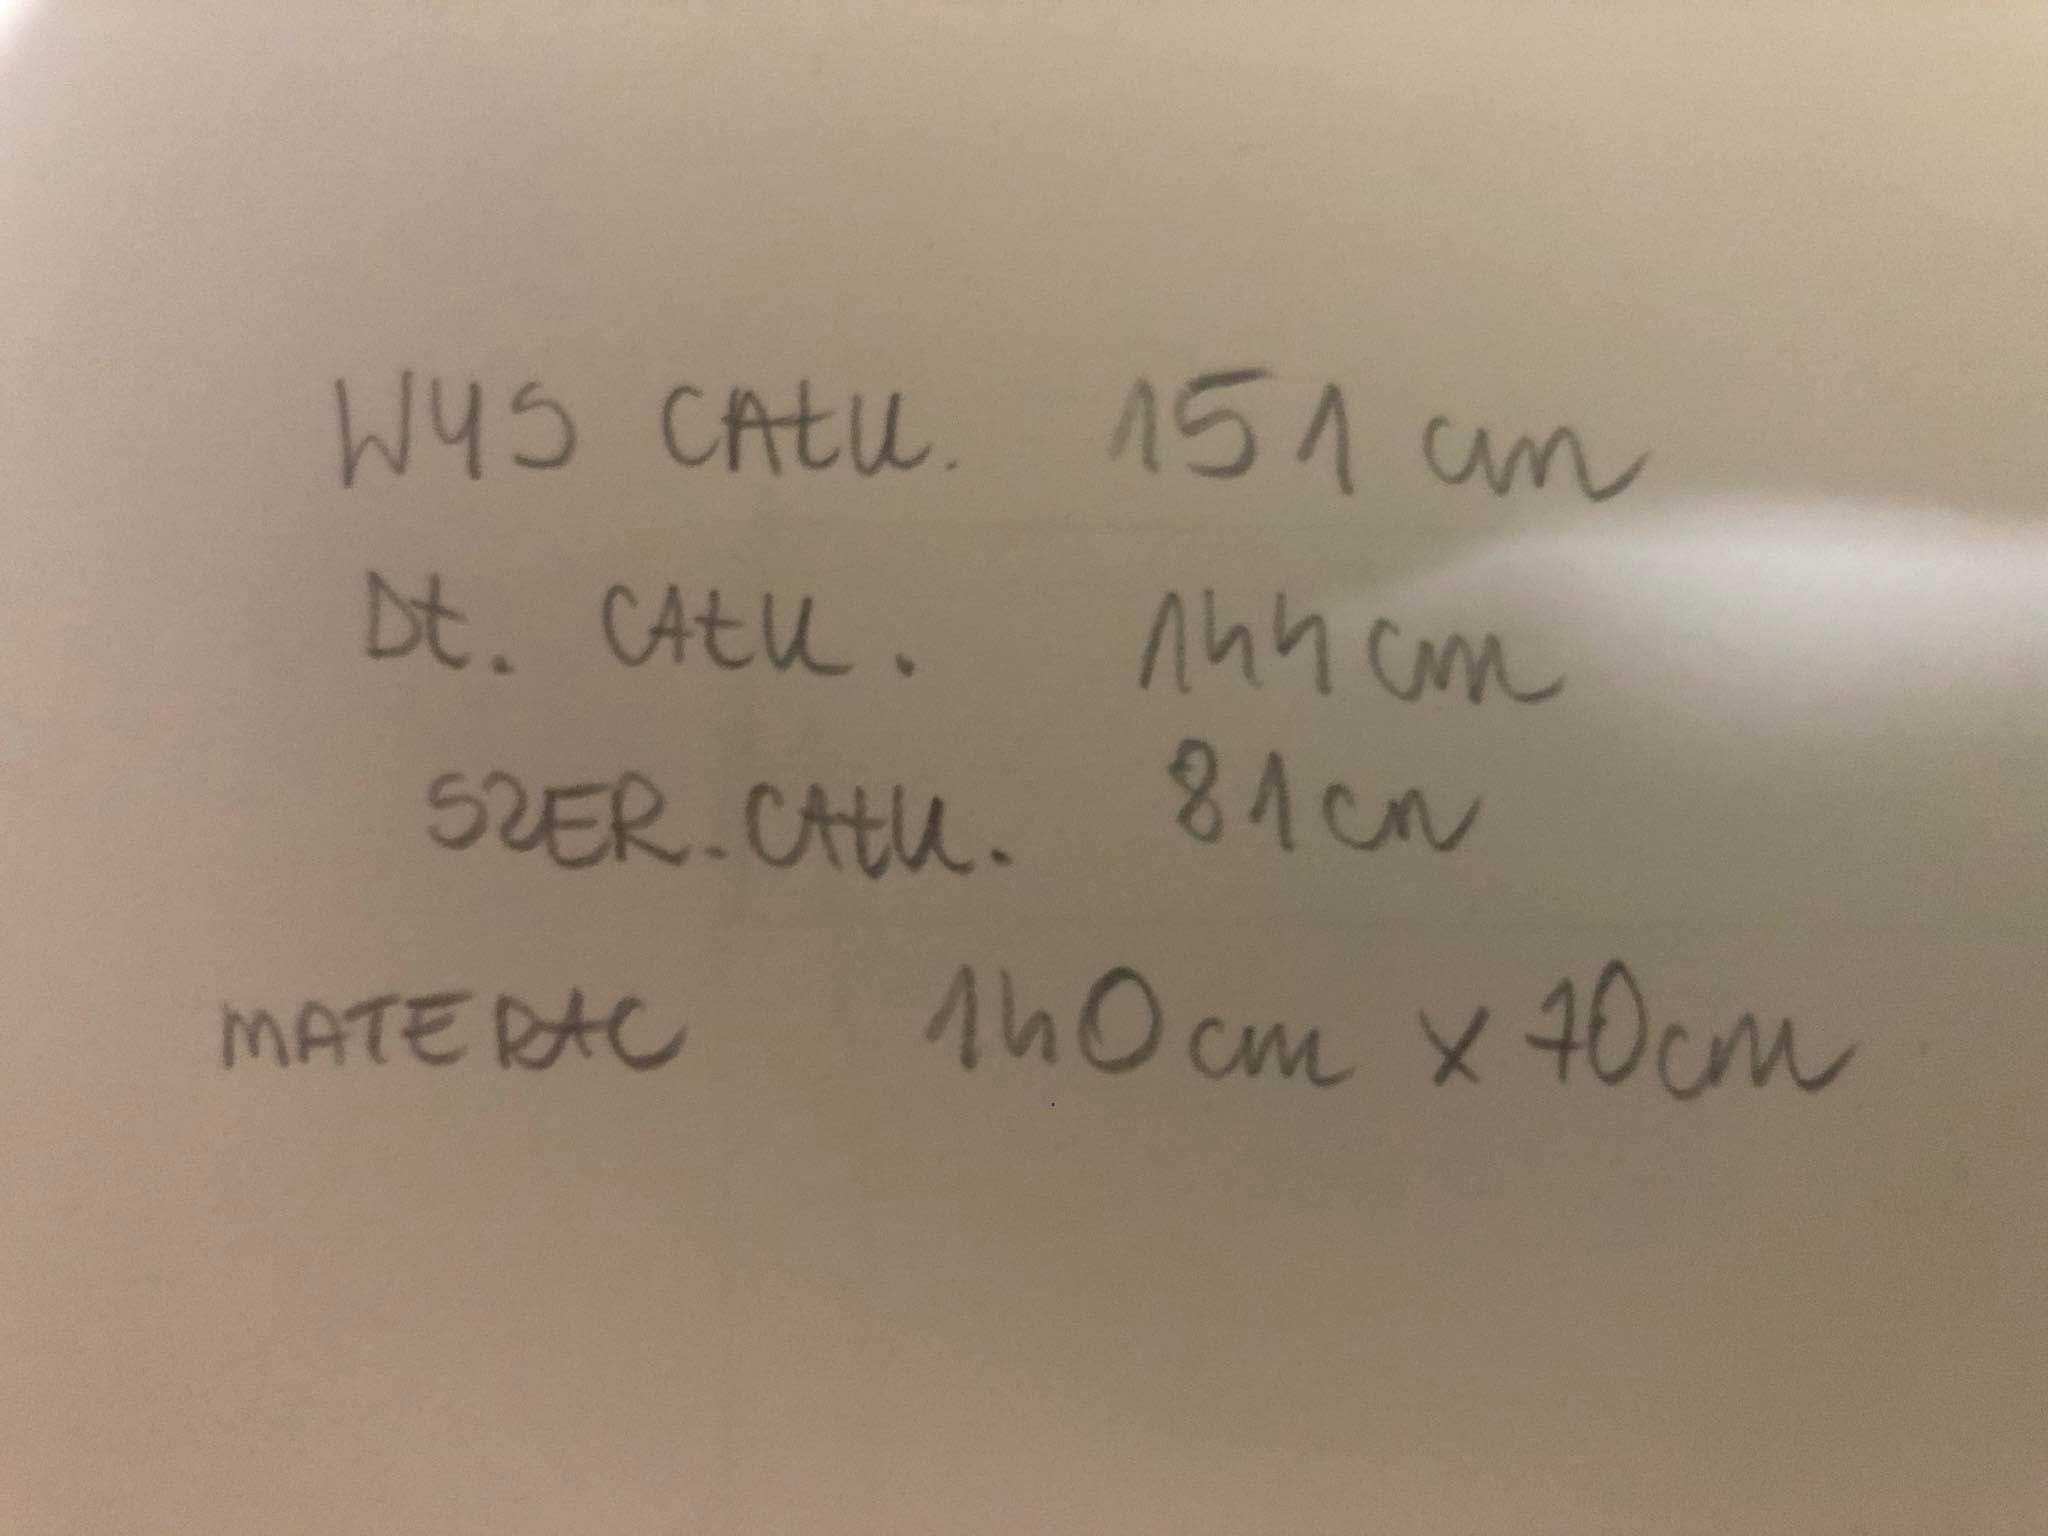 WYS CAŁK. 151 cm
DŁ. CAŁK. 144 cm
SZER. CAŁK. 81 cm
MATERAC 140 cm x 70 cm